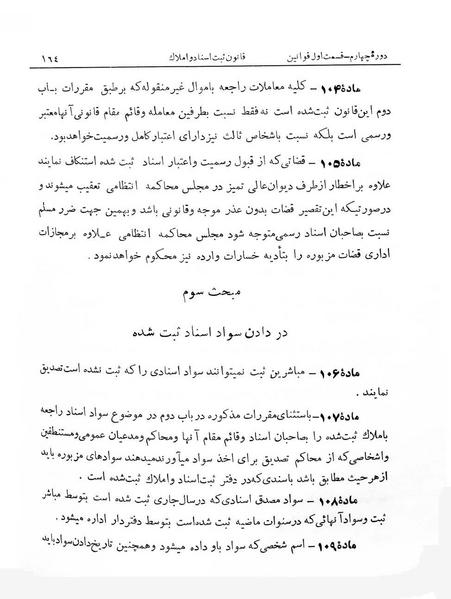 دورهٔ چهارم – قسمت اول قوانین    قانون ثبت اسناد و املاك    ١٦٤
مادهٔ ١٠٤ – کلیه معاملات راجعه باموال غیر منقوله که بر طبق مقررات باب
دوم این قانون ثبت شده است نه فقط نسبت بطرفین معامله و قائم مقام قانونی آنها معتبر
و رسمی است بلکه نسبت باشخاص ثالث نیز دارای اعتبار کامل و رسمیت خواهد بود.
مادهٔ ١٠٥ – قضاتی که از قبول رسمیت و اعتبار اسناد ثبت شده استنکاف نمایند
علاوه بر اخطار از طرف دیوان عالی تمیز در مجلس محاکمه انتظامی تعقیب میشوند و
در صورتیکه این تقصیر قضات بدون عذر موجه و قانونی باشد و بهمین جهت ضرر مسلم
نسبت بصاحبان اسناد رسمی متوجه شود مجلس محاکمه انتظامی عـلاوه بر مجازات
اداری قضات مزبوره را بتأدیه خسارات وارده نیز محکوم خواهد نمود .
مبحث سوم
در دادن سواد اسناد ثبت شده
مادهٔ ١٠٦ – مباشرین ثبت نمیتوانند سواد اسنادی را که ثبت نشده است تصدیق
نمایند .
مادهٔ ١٠٧– باستثنای مقررات مذکوره در باب دوم در موضوع سواد اسناد راجعه
باملاك ثبت شده را بصاحبان اسناد و قائم مقام آنها و محاکم و مدعیان عمومی و مستنطقین
و اشخاصی که از محاکم تصدیق برای اخذ سواد میآورند میدهند سوادهای مزبوره باید
از هر حیث مطابق باشد با سندی که در دفتر ثبت اسناد و املاك ثبت شده است .
مادهٔ ١٠٨ – سواد مصدق اسنادی که در سال جاری ثبت شده است بتوسط مباشر
ثبت و سواد آنهائی که در سنوات ماضیه ثبت شده است بتوسط دفتردار اداره میشود .
مادهٔ ١٠٩ – اسم شخصی که سواد باو داده میشود و همچنین تاریخ دادن سواد باید